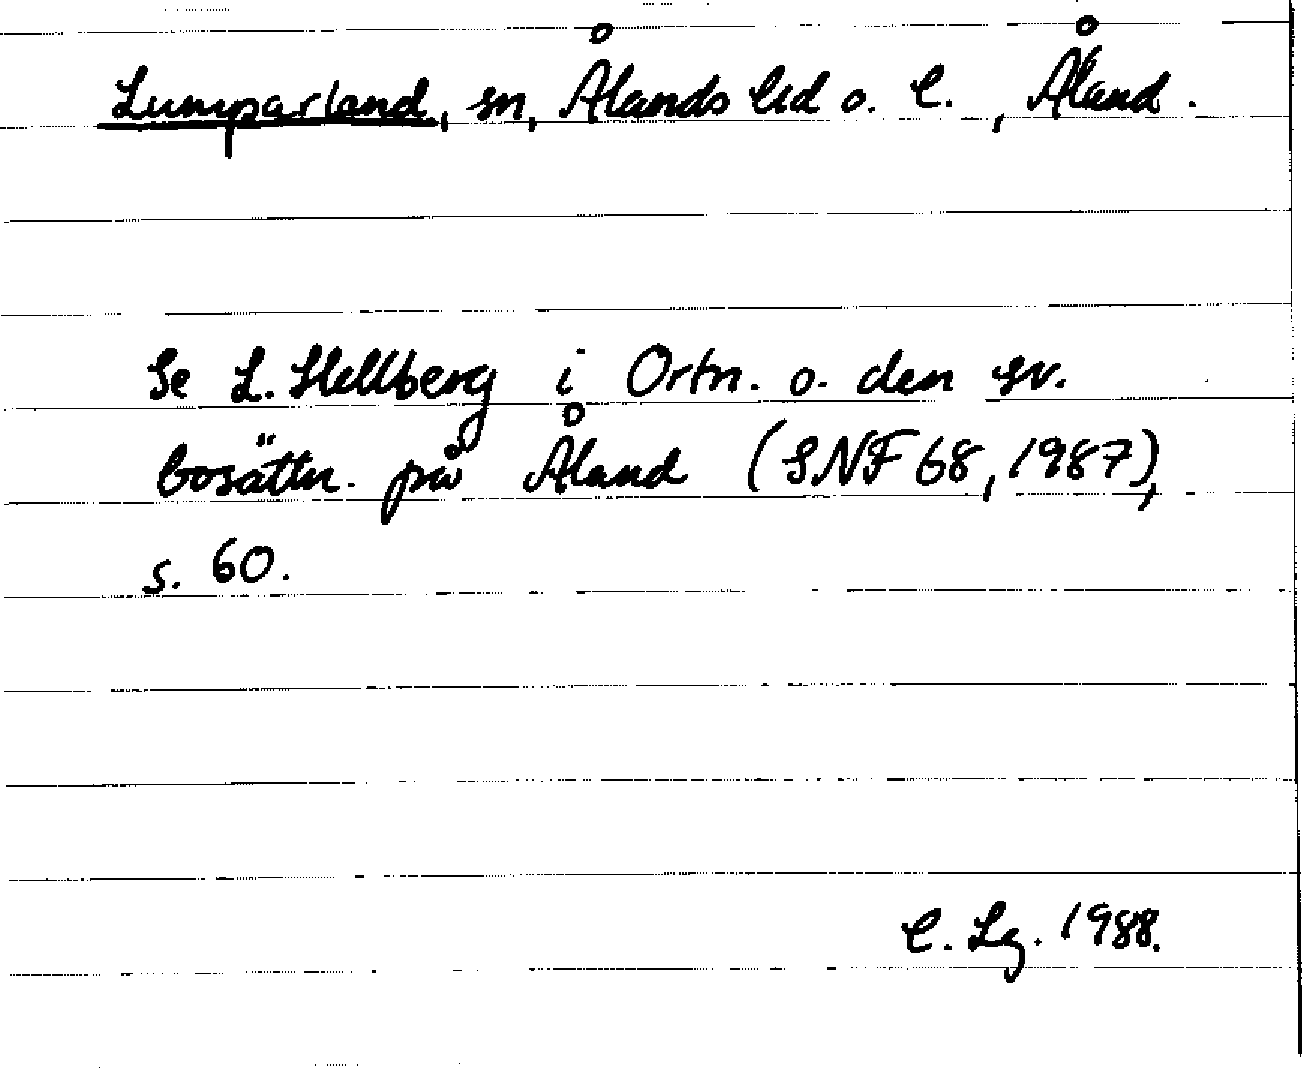 Lumparland, sn, Ålands lid o. l. , Åland.
Se L. Hellberg i Ortn. o. den sv.
bosättn. på Åland (SNF 68, 1987),
s. 60.
C. Lg. 1988.